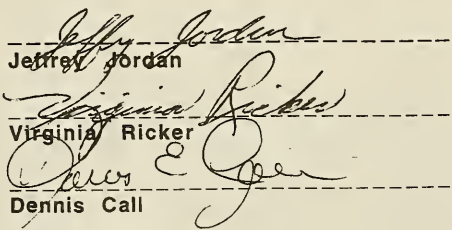 Jeffry Jorden
Jeffrey Jordan
Virginia Ricker
Virginia Ricker
E
Dennis Call